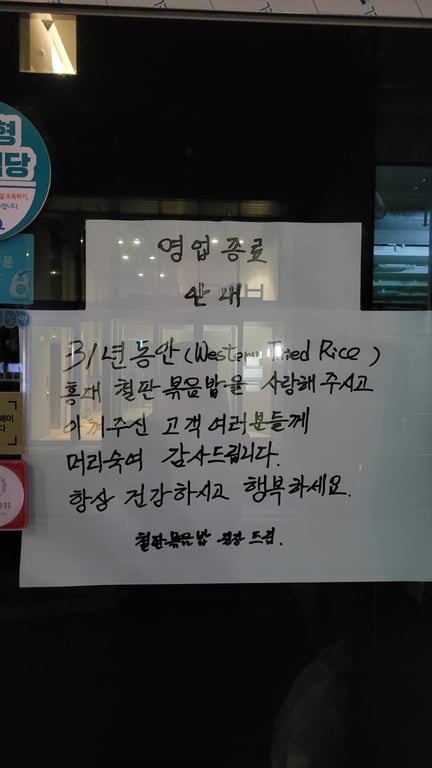 영업종료
안내
31년동안 (Western Fried Rice)
홍제 철판볶음밥을 사랑해 주시고
아껴주신 고객여러분들께
머리숙여 감사드립니다.
항상 건강하시고 행복하세요.
철판볶음밥 점장 드림.
형
당
문